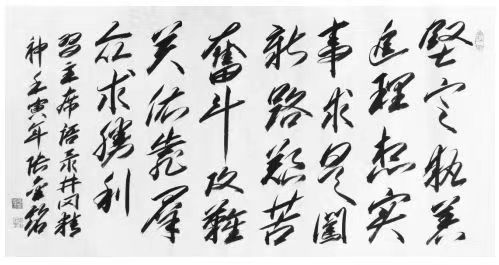 坚定执着
追理想实
事求是闯
新路艰苦
奋斗攻难
关依靠群
众求胜利
习主席悟录井冈精
神壬寅年张雪铭